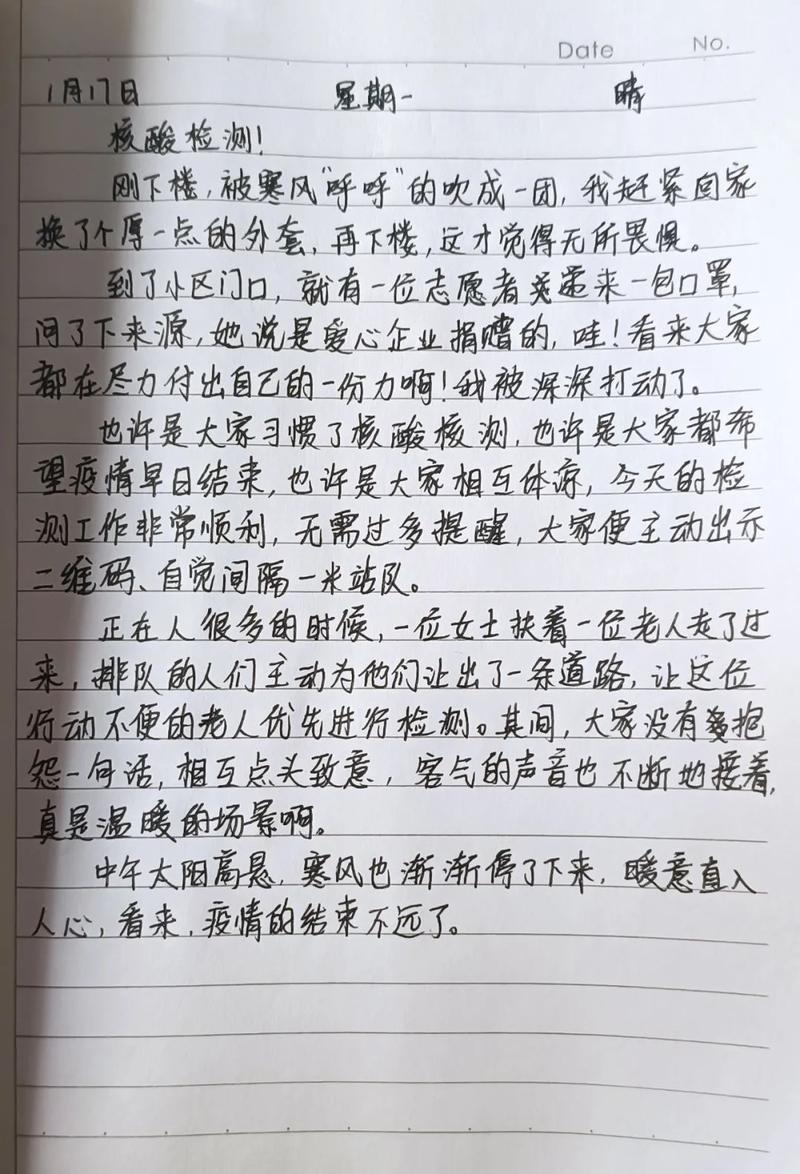 Date No.
1月17日 星期一 晴
核酸检测!
刚下楼,被寒风“呼呼”的吹成一团,我赶紧回家
换了个厚一点的外套,再下楼,这才觉得无所畏惧。
到了小区门口,就有一位志愿者递来一包口罩,
问了下来源,她说是爱心企业捐赠的,哇!看来大家
都在尽力付出自己的一份力啊!我被深深打动了。
也许是大家习惯了核酸核测,也许是大家都希
望疫情早日结束,也许是大家相互体谅,今天的检
测工作非常顺利,无需过多提醒,大家便主动出示
二维码、自觉间隔一米站队。
正在人很多的时候,一位女士扶着一位老人走了过
来,排队的人们主动为他们让出了一条道路,让这位
行动不便的老人优先进行检测。其间,大家没有多抱
怨一句话,相互点头致意,客气的声音也不断地接着,
真是温暖的场景啊。
中午太阳高悬,寒风也渐渐停了下来,暖意直入
人心,看来,疫情的结束不远了。